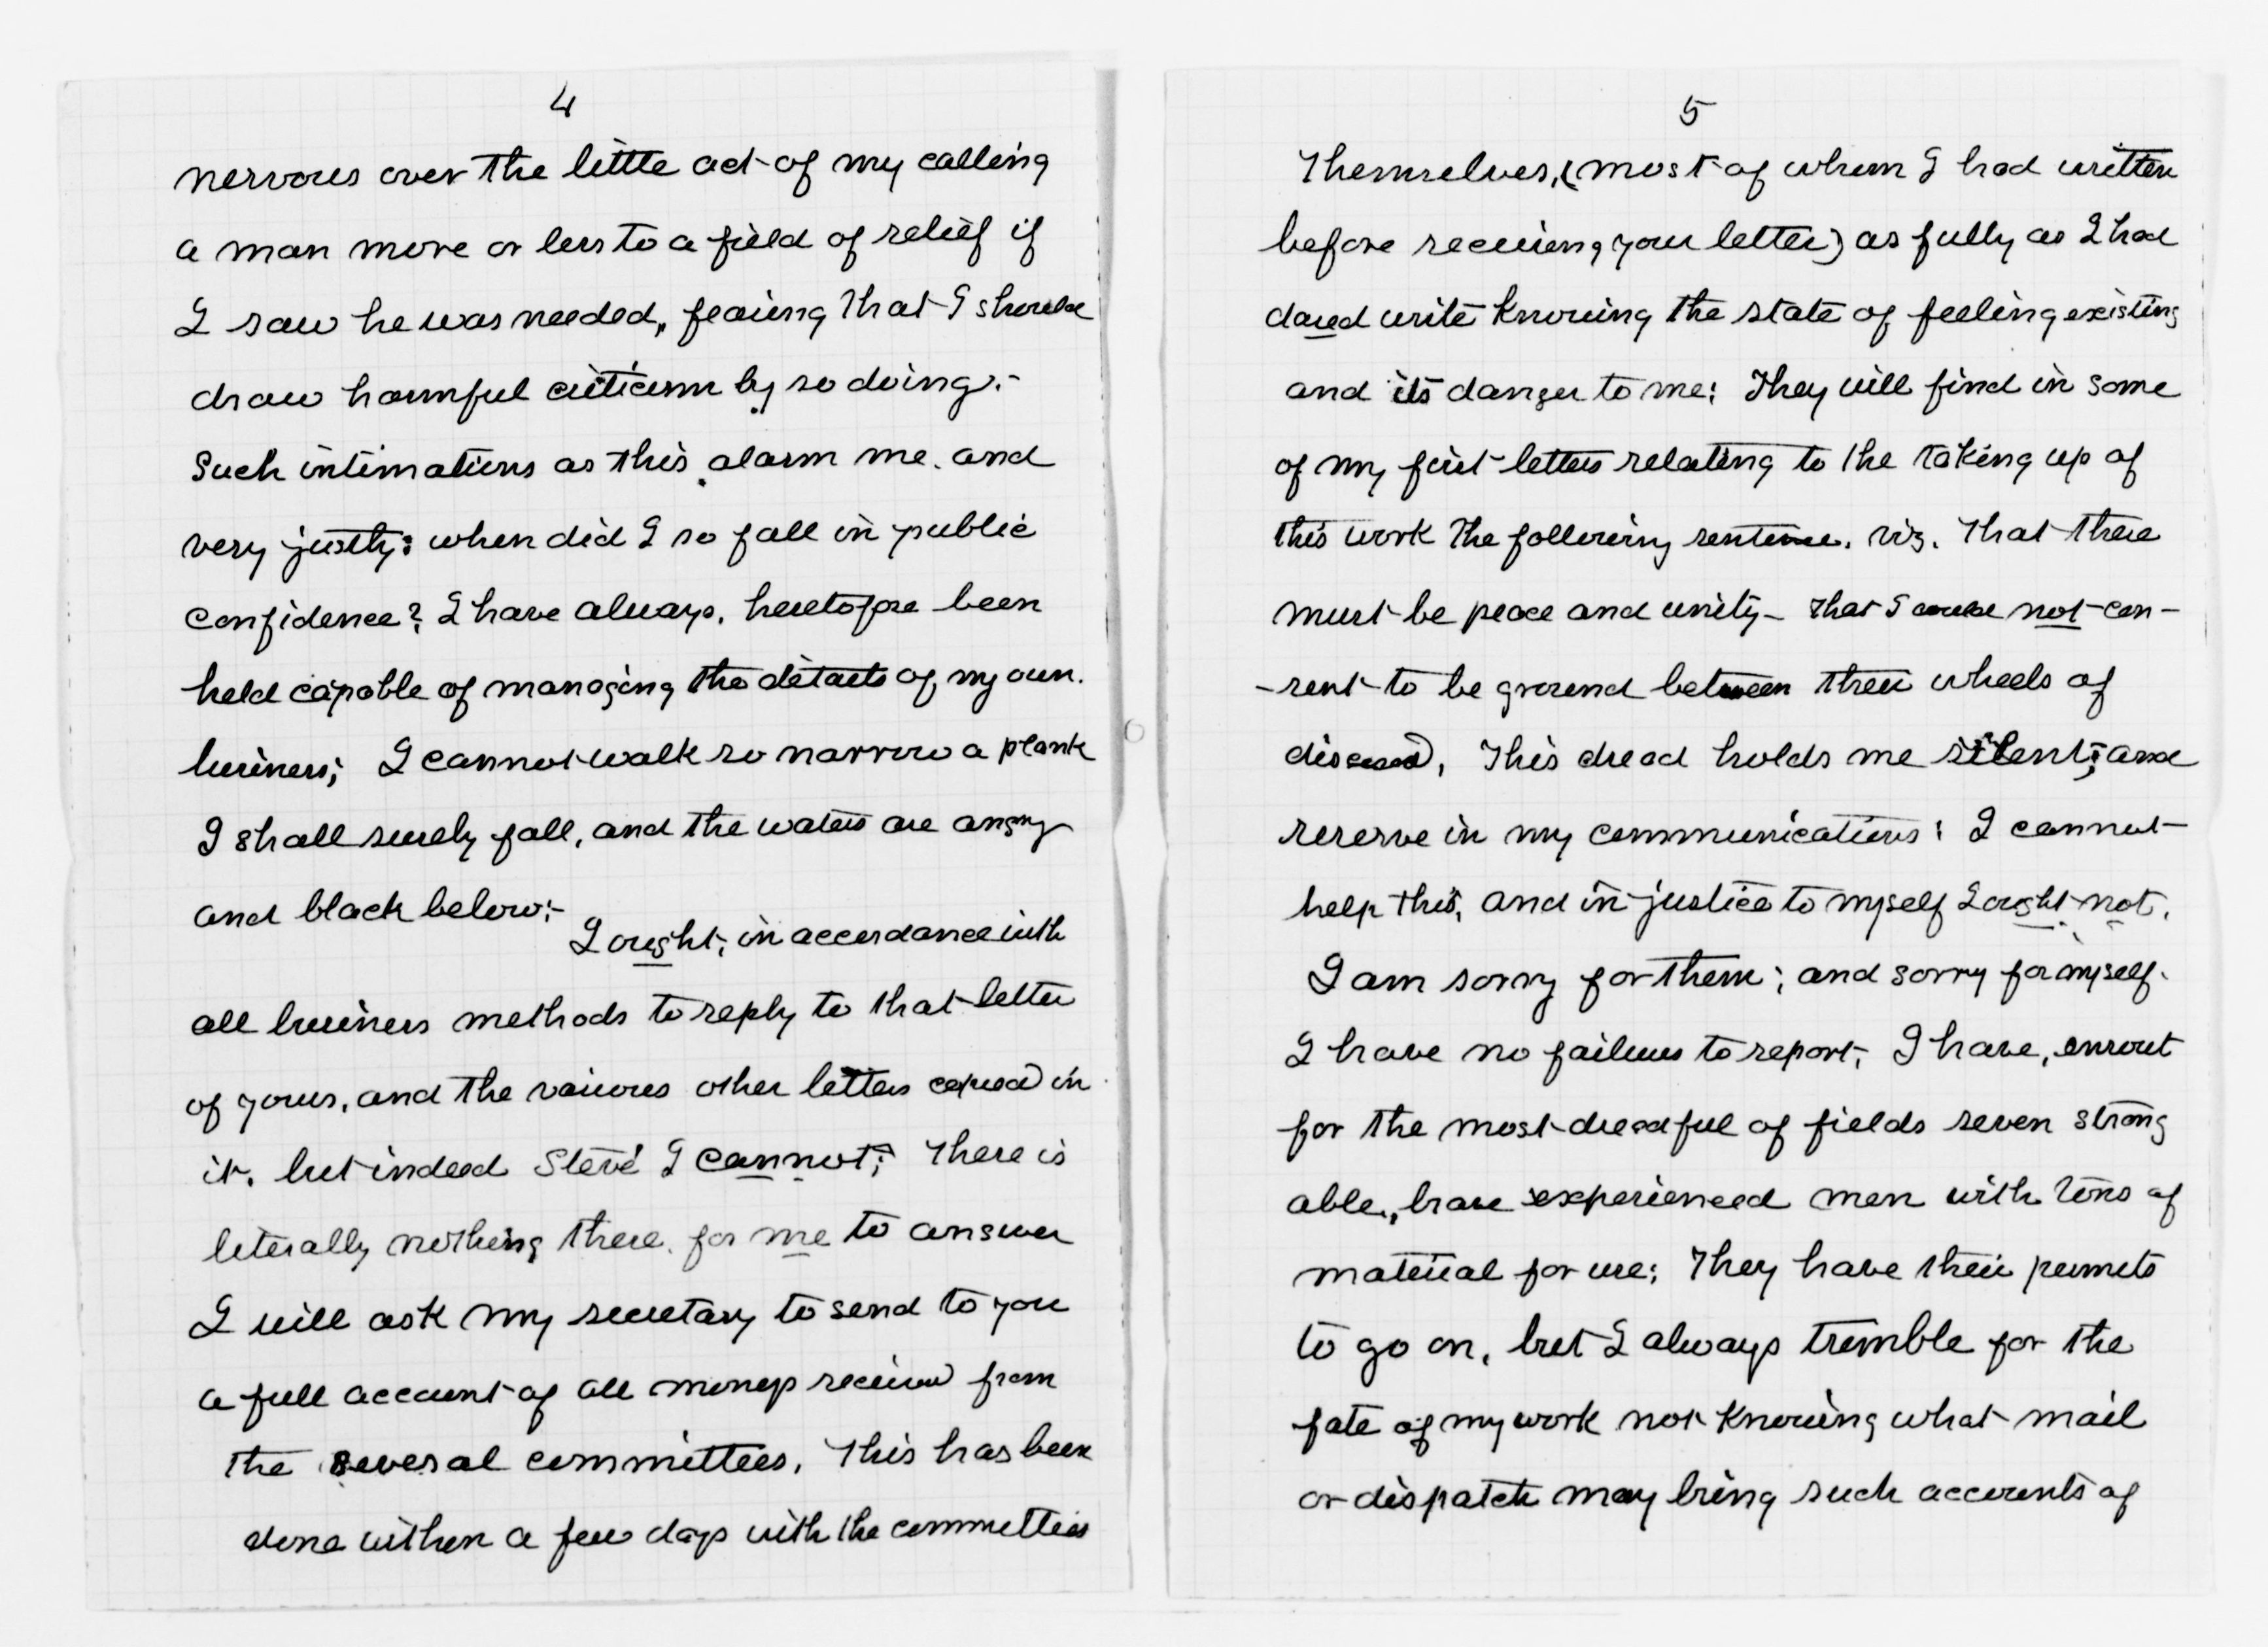 4
nervous over the little act of my calling
a man more or less to a field of relief if
I saw he was needed, fearing that I should
draw harmful criticism by so doing.-
Such intimations as this alarm me. and
very justly: when did I so fall in public
confidence? I have always, heretofore been
held capable of managing the details of my own.
business; I cannot walk so narrow a plank
I shall surely fall, and the waters are angry
and black below:-
I ought, in accordance with
all business methods to reply to that letter
of yours, and the various other letters copied in
it. but indeed Steve I cannot; There is
literally nothing there for me to answer
I will ask my secretary to send to you
a full account of all moneys received from
the several committees, This has been
done within a few days with the committees
5
themselves, (most of whom I had written
before receiving your letter) as fully as I had
dared write knowing the state of feeling existing
and its danger to me: They will find in some
of my first letters relating to the taking up of
this work the following sentence. viz. that there
must be peace and unity - that I could not con-
-sent to be ground between three wheels of
discord, This dread holds me silent; and
reserve in my communications: I cannot
help this, and in justice to myself I ought not.
I am sorry for them; and sorry for myself.
I have no failures to report, I have, enrout
for the most dreadful of fields seven strong
able, brave experienced men with tons of
material for use: They have their permits
to go on, but I always tremble for the
fate of my work not knowing what mail
or dispatch may bring such accounts of